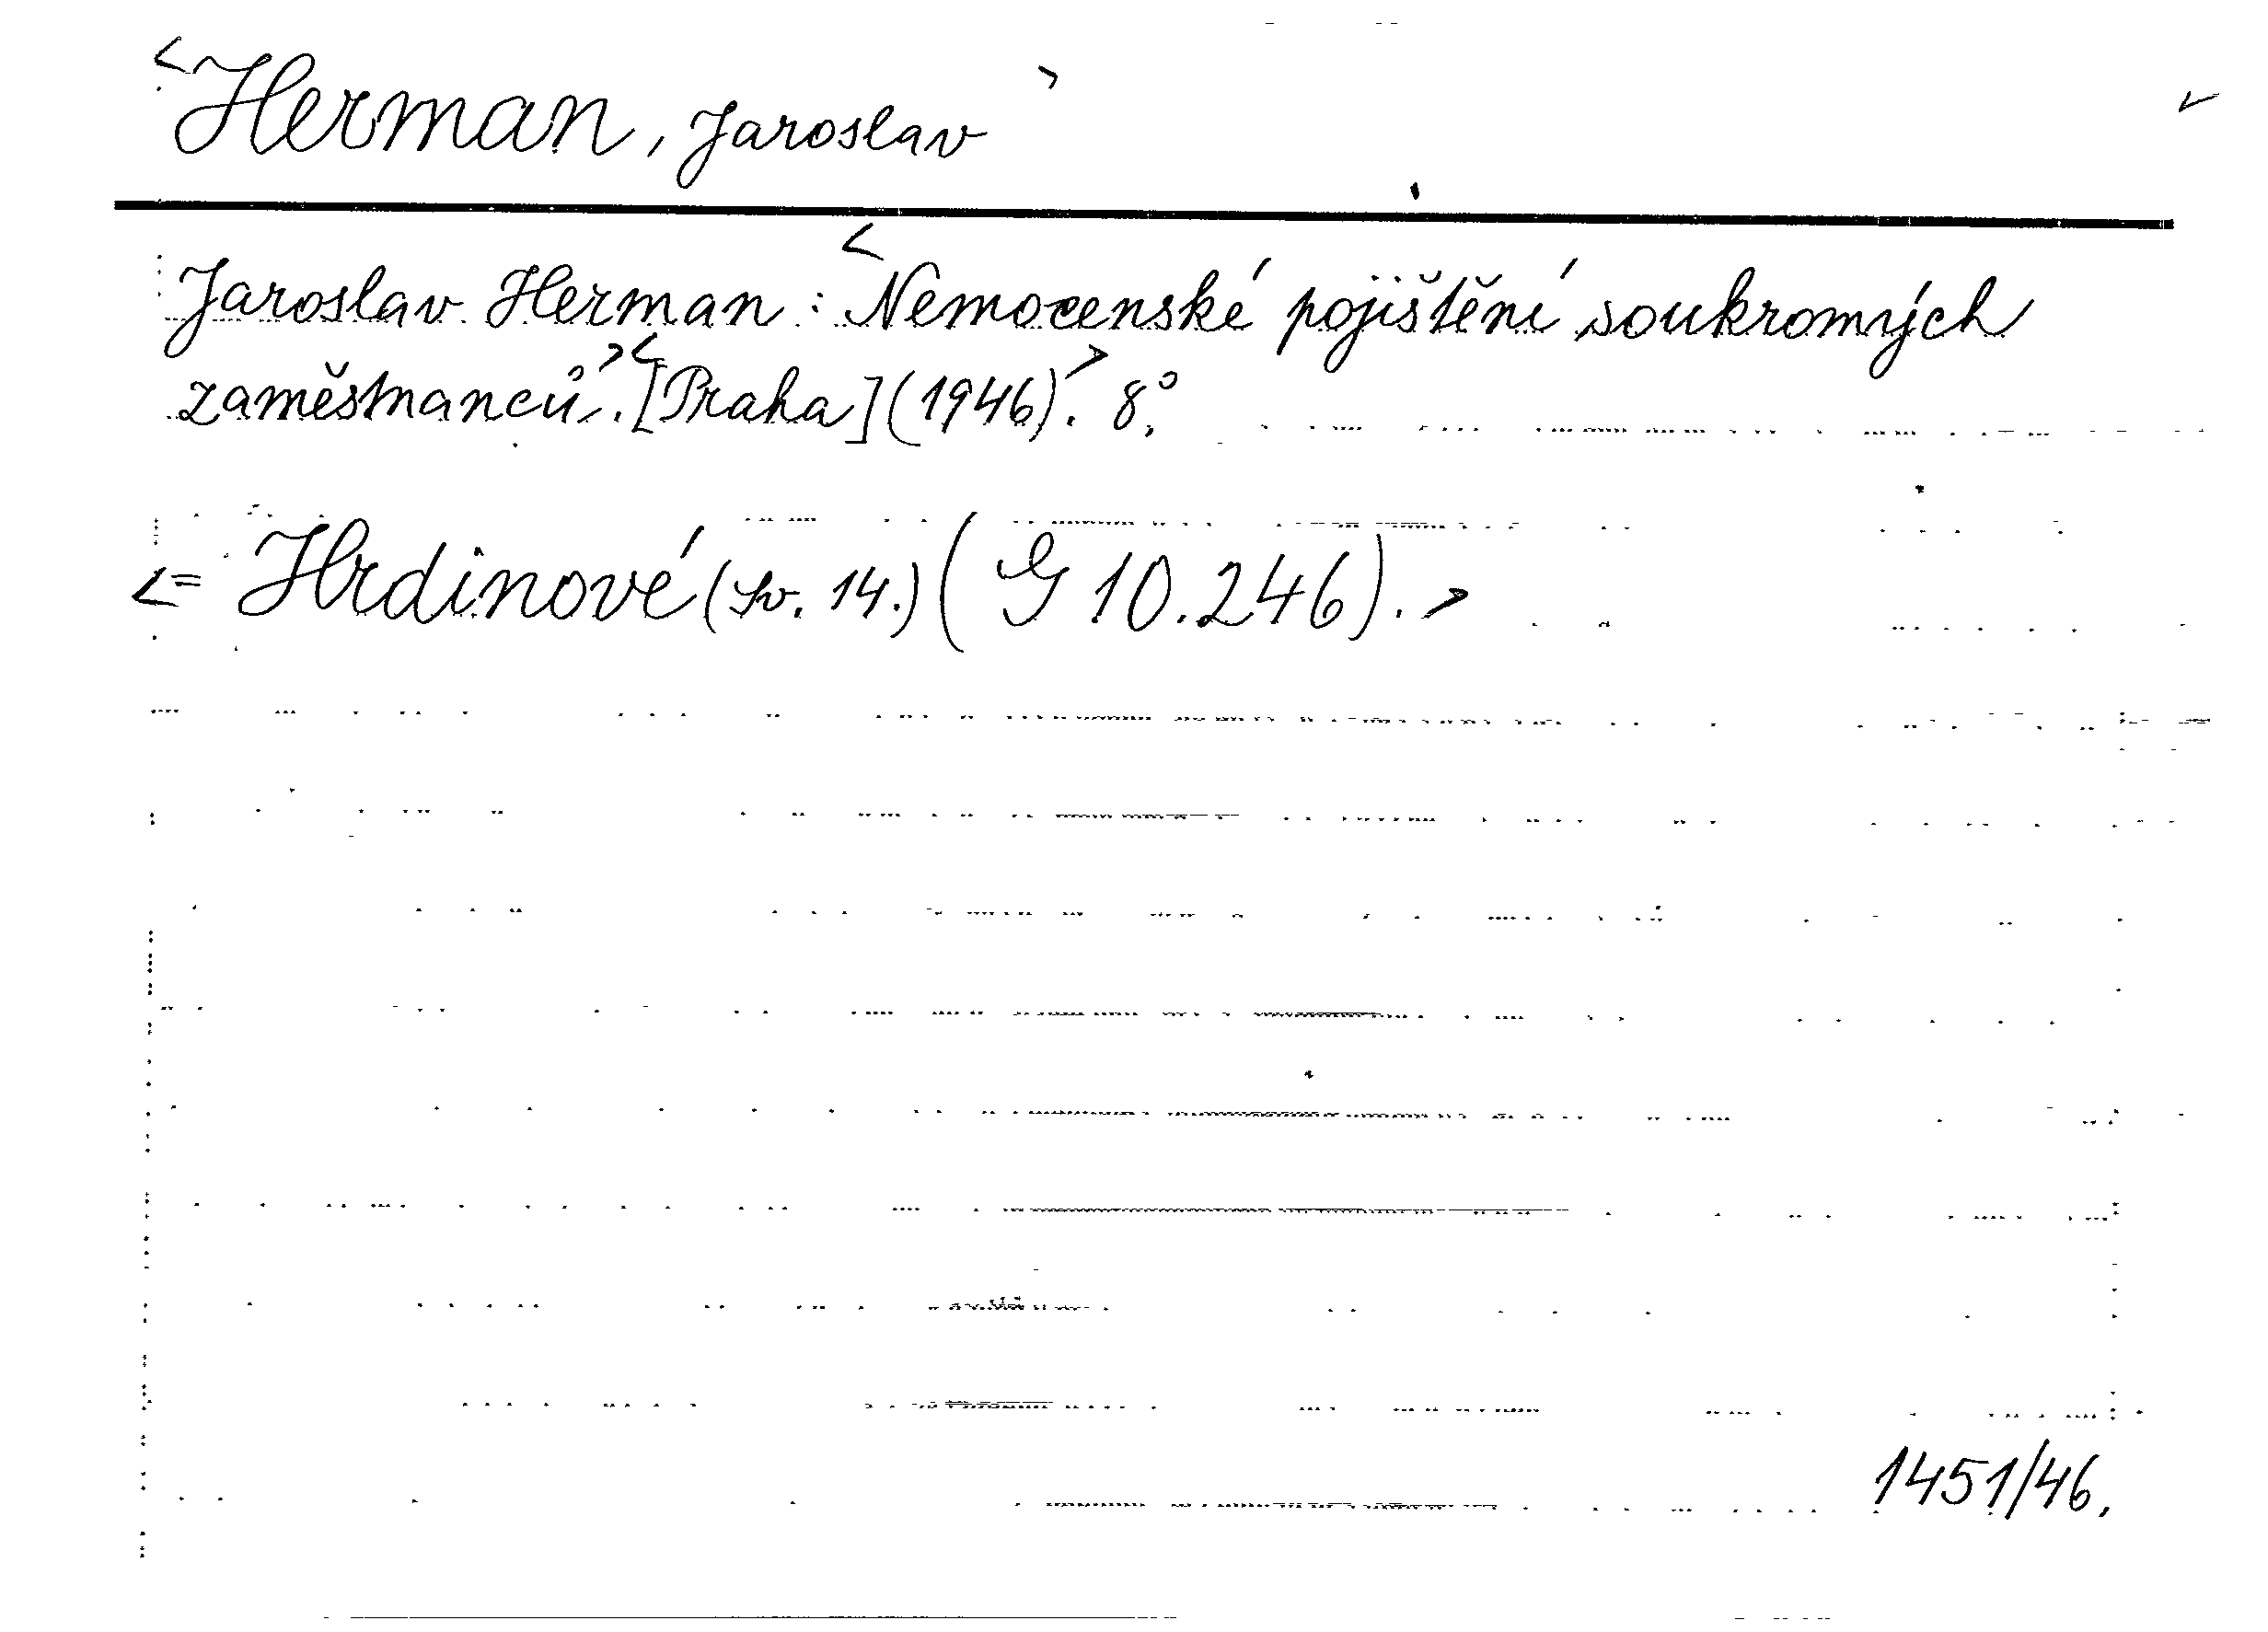 <Herman, Jaroslav>
Jaroslav Herman: <Nemocenské pojištění soukromých
zaměstnanců.><[Praha](1946).> 8°.
<= Hrdinové (Sv. 14.) (G 10.246).>
1451/46.